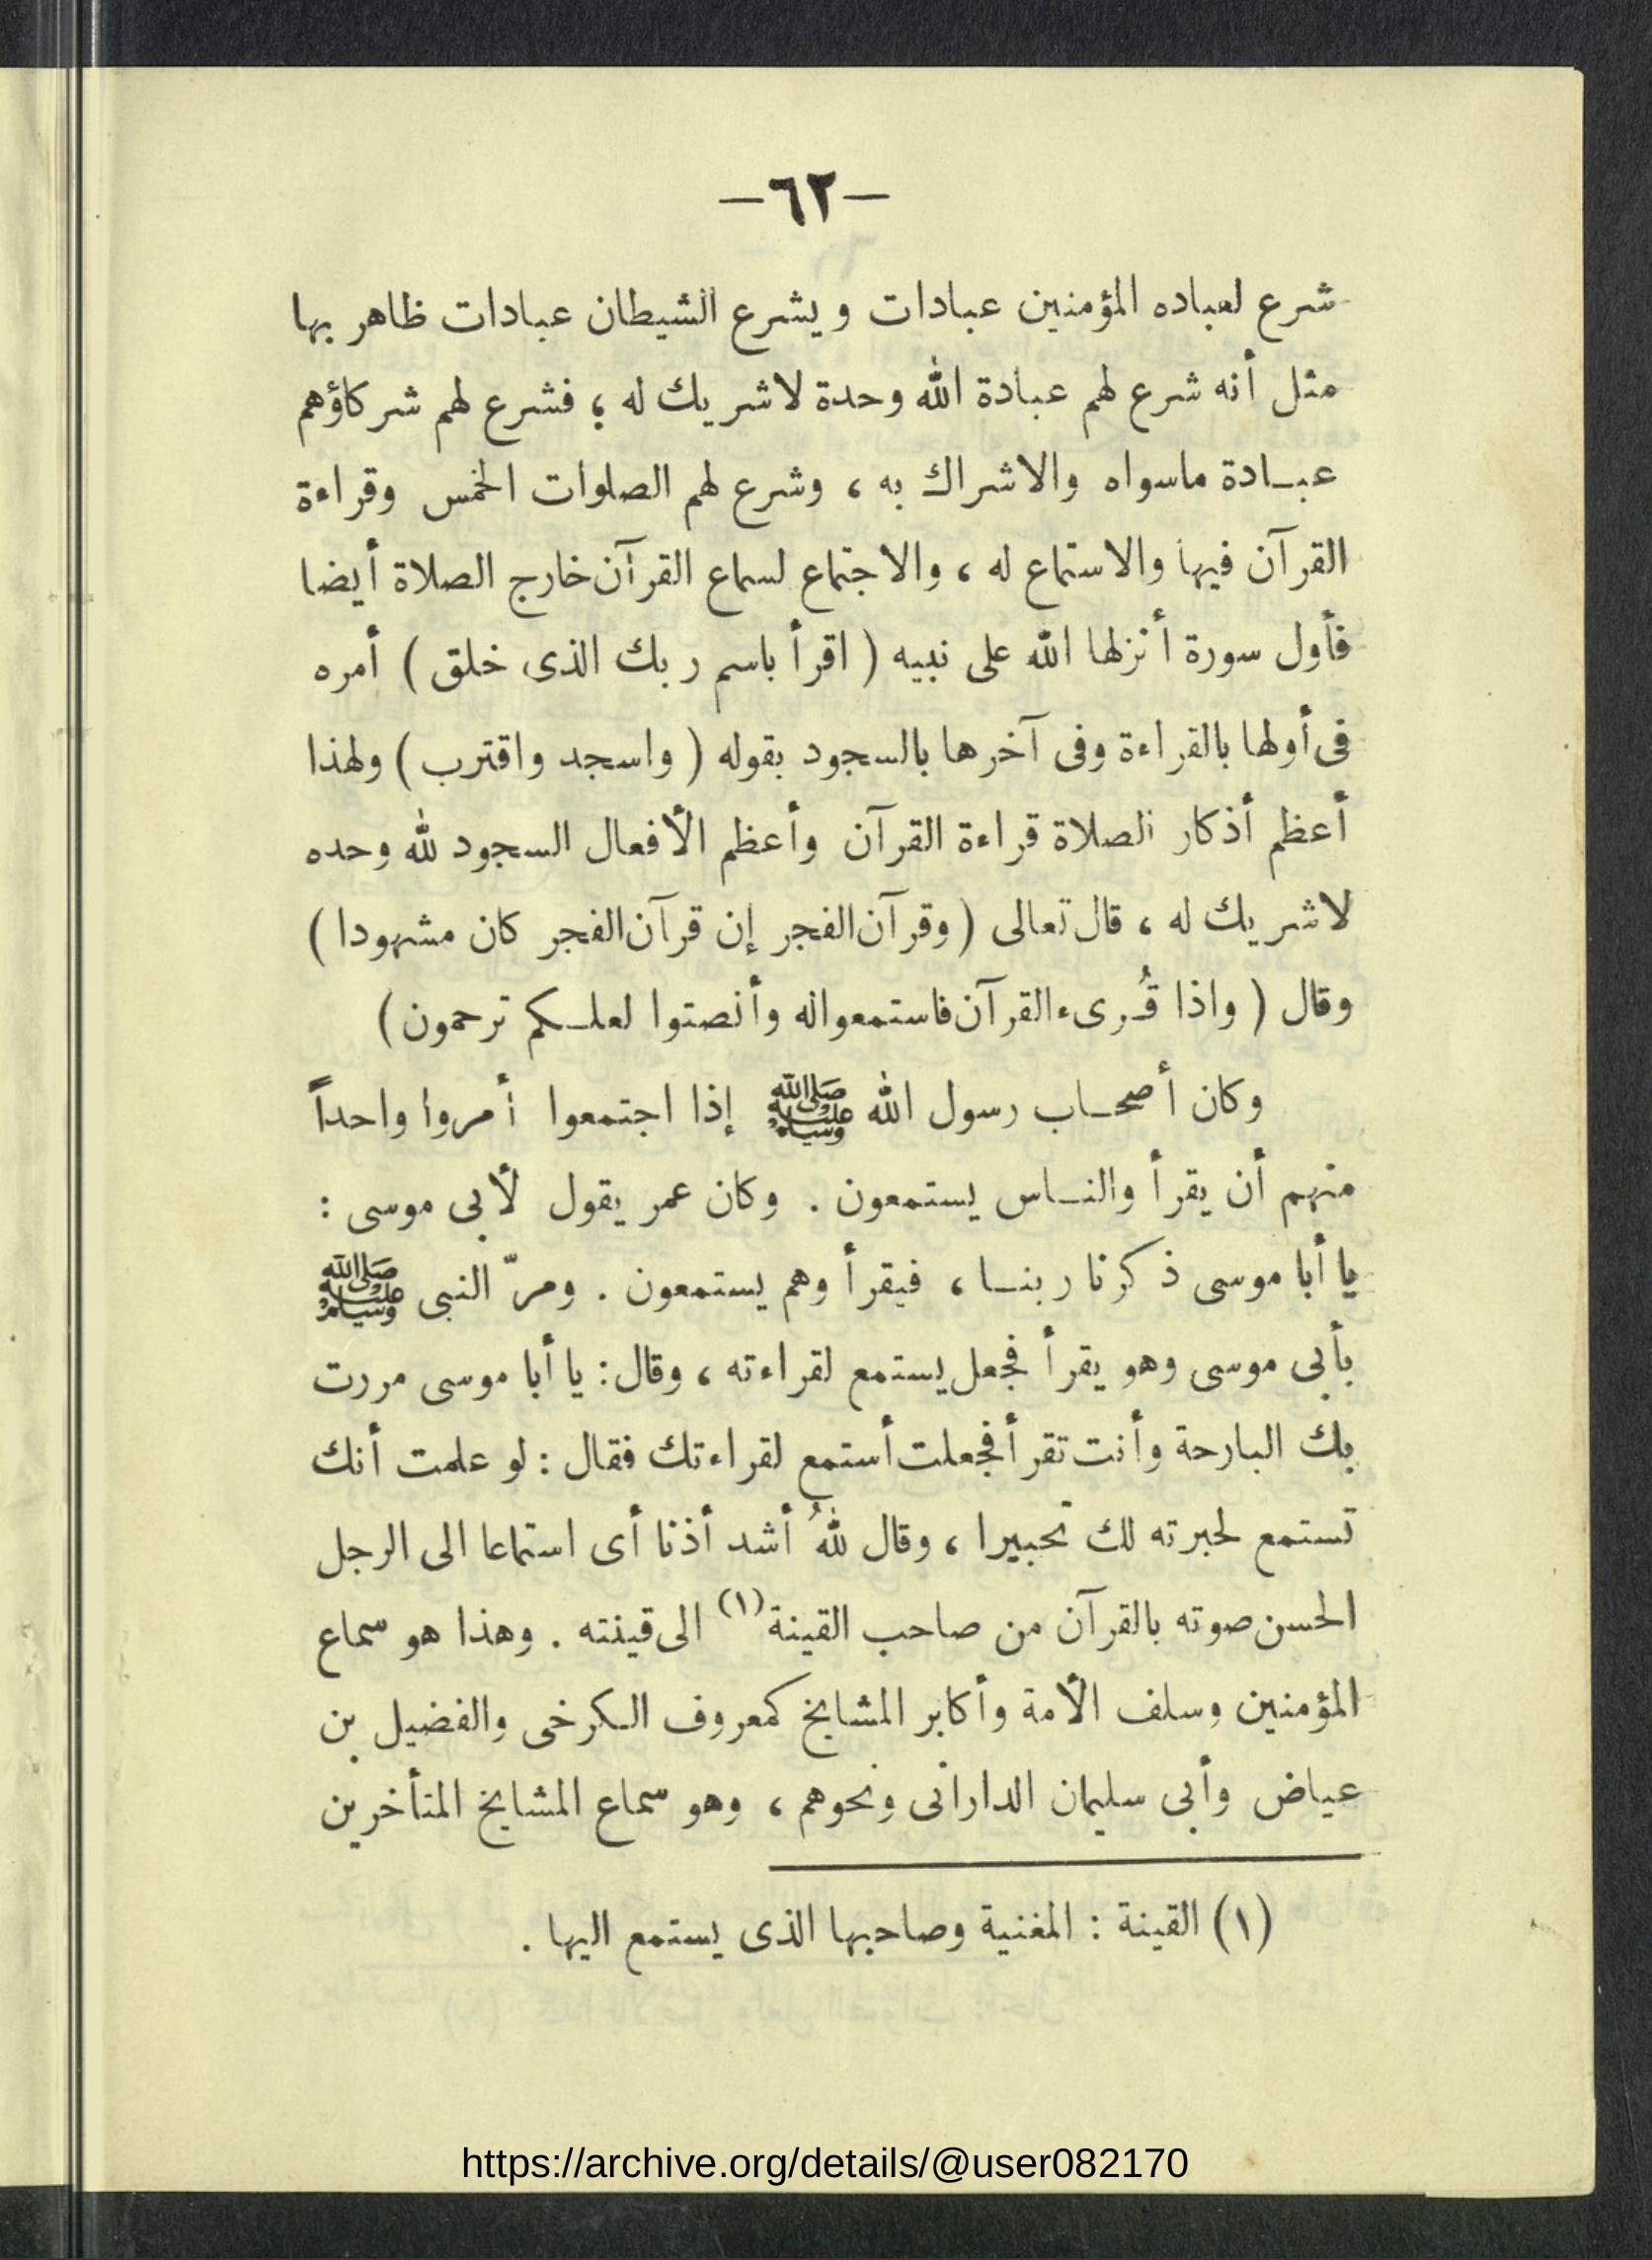 —٦٢—
شرع لعباده المؤمنين عبادات ويشرع الشيطان عبادات ظاهر بها
مثل أنه شرع لهم عبادة الله وحدة لاشريك له ؛ فشرع لهم شركاؤهم
عبادة ماسواه والاشراك به ، وشرع لهم الصلوات الخمس وقراءة
القرآن فيها والاستماع له ، والاجتماع لسماع القرآن خارج الصلاة أيضا
فأول سورة أنزلها الله على نبيه ( اقرأ باسم ربك الذى خلق ) أمره
فى أولها بالقراءة وفى آخرها بالسجود بقوله ( واسجد واقترب ) ولهذا
أعظم أذكار الصلاة قراءة القرآن وأعظم الأفعال السجود لله وحده
لاشريك له ، قال تعالى ( وقرآن الفجر إن قرآن الفجر كان مشهودا )
وقال ( واذا قُرىء القرآن فاستمعوا له وأنصتوا لعلكم ترحمون )
وكان أصحاب رسول الله ﷺ إذا اجتمعوا أمروا واحداً
منهم أن يقرأ والناس يستمعون . وكان عمر يقول لأبى موسى :
يا أبا موسى ذكرنا ربنا ، فيقرأ وهم يستمعون . ومرّ النبى ﷺ
بأبى موسى وهو يقرأ فجعل يستمع لقراءته ، وقال : يا أبا موسى مررت
بك البارحة وأنت تقرأ فجعلت أستمع لقراءتك فقال : لو علمت أنك
تستمع لحبرته لك تحبيرا ، وقال للهُ أشد أذنا أى استماعا الى الرجل
الحسن صوته بالقرآن من صاحب القينة (١) الى قينته . وهذا هو سماع
المؤمنين وسلف الأمة وأكابر المشايخ كمعروف الكرخى والفضيل بن
عياض وأبى سليمان الدارانى ونحوهم ، وهو سماع المشايخ المتأخرين
(١) القينة : المغنية وصاحبها الذى يستمع اليها .
https://archive.org/details/@user082170